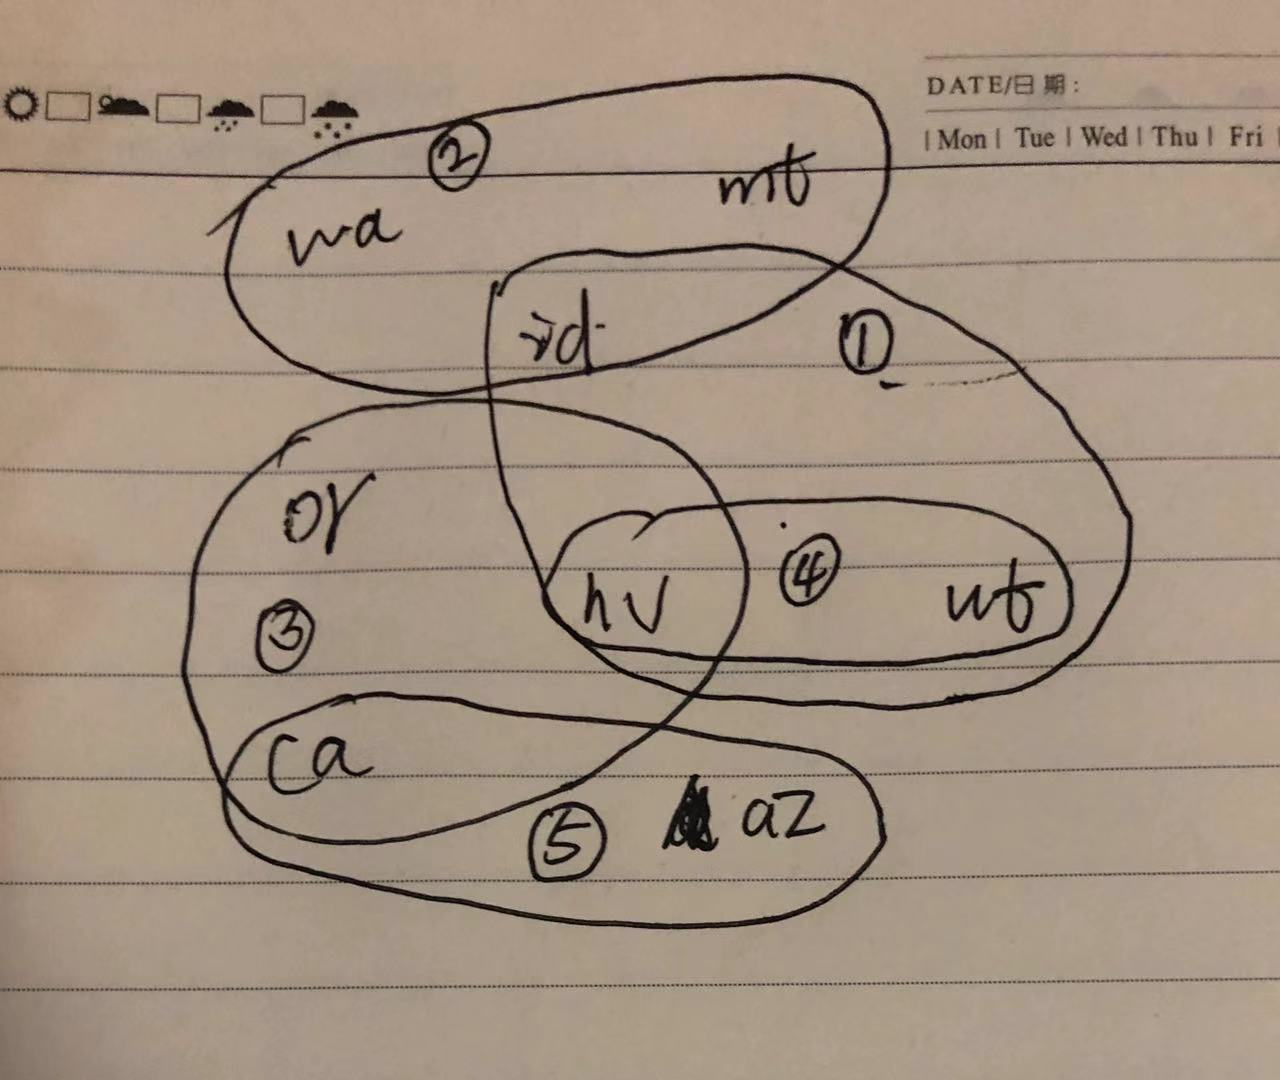 DATE/日期:
| Mon | Tue | Wed | Thu | Fri |
②
wa mt
id
①
or
③ hv ④ ut
ca
⑤ az